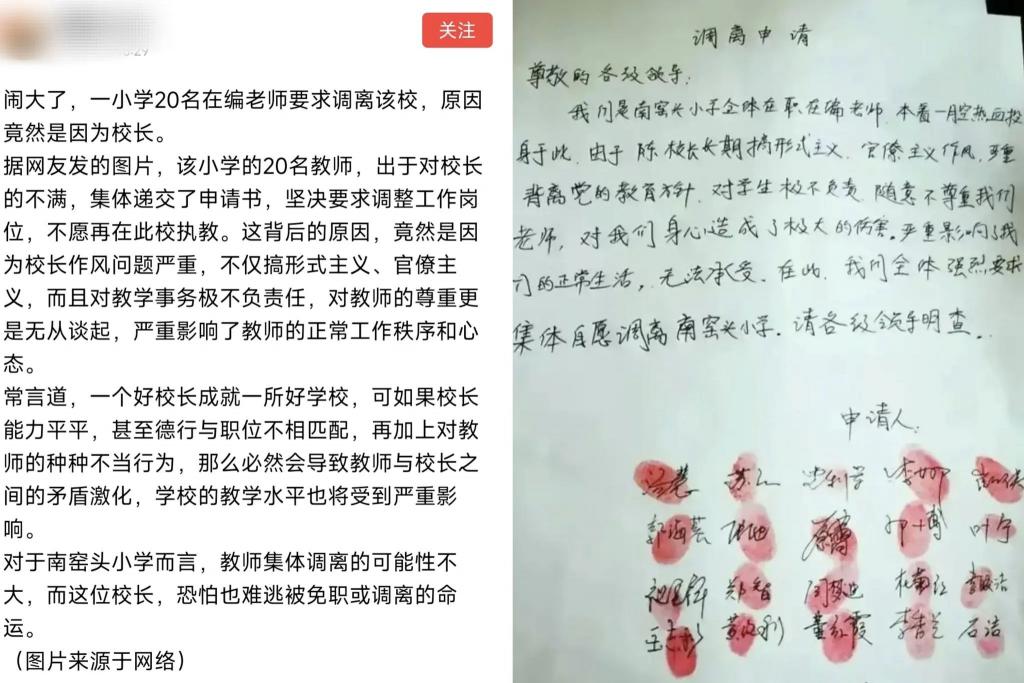 关注
闹大了，一小学20名在编老师要求调离该校，原因
竟然是因为校长。
据网友发的图片，该小学的20名教师，出于对校长
的不满，集体递交了申请书，坚决要求调整工作岗
位，不愿再在此校执教。这背后的原因，竟然是因
为校长作风问题严重，不仅搞形式主义、官僚主
义，而且对教学事务极不负责任，对教师的尊重更
是无从谈起，严重影响了教师的正常工作秩序和心
态。
常言道，一个好校长成就一所好学校，可如果校长
能力平平，甚至德行与职位不相匹配，再加上对教
师的种种不当行为，那么必然会导致教师与校长之
间的矛盾激化，学校的教学水平也将受到严重影
响。
对于南窑头小学而言，教师集体调离的可能性不
大，而这位校长，恐怕也难逃被免职或调离的命
运。
（图片来源于网络）
调离申请
尊敬的各级领导：
我们是南窑头小学全体在职在编老师，本着一腔热血投
身于此，由于陈校长长期搞形式主义、官僚主义作风，严重
背离党的教育方针，对学生极不负责，随意不尊重我们
老师，对我们身心造成了极大的伤害。严重影响了我
们的正常生活，无法承受。在此，我们全体强烈要求
集体自愿调离南窑头小学。请各级领导明查。
申请人：
郭海芸 叶宁
郑智
董红霞 李香兰 石洁